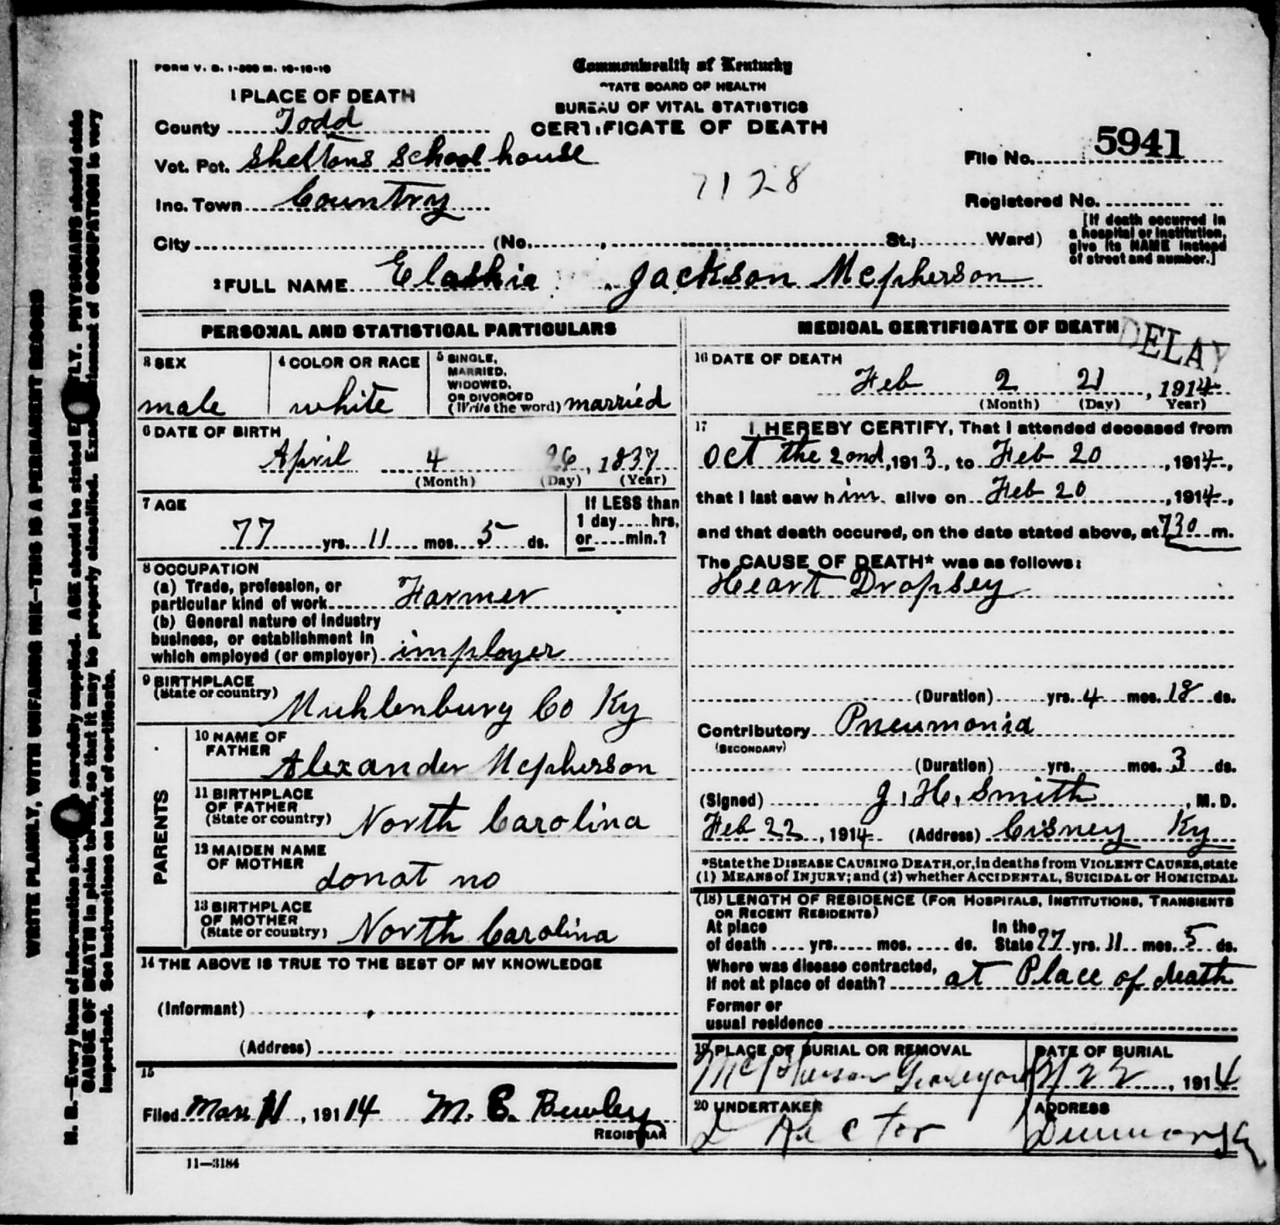 FORM V. S. 1-500 M. 10-10-10
Commonwealth of Kentucky
STATE BOARD OF HEALTH
BUREAU OF VITAL STATISTICS
CERTIFICATE OF DEATH
1 PLACE OF DEATH
County Todd
Vot. Pct. Sheltons School house
Inc. Town Country
City (No. , St.; Ward)
7128
File No. 5941
Registered No.
[If death occurred in
a hospital or institution,
give its NAME instead
of street and number.]
2 FULL NAME Elashia Jackson Mcpherson
PERSONAL AND STATISTICAL PARTICULARS
3 SEX
male
4 COLOR OR RACE
white
5 SINGLE,
MARRIED,
WIDOWED,
OR DIVORCED
(Write the word) married
6 DATE OF BIRTH
April 4 26, 1837
(Month) (Day) (Year)
7 AGE
77 yrs. 11 mos. 5 ds.
If LESS than
1 day hrs.
or min.?
8 OCCUPATION
(a) Trade, profession, or
particular kind of work Farmer
(b) General nature of industry
business, or establishment in
which employed (or employer) imployer
9 BIRTHPLACE
(State or country) Muhlenburg Co Ky
PARENTS
10 NAME OF
FATHER Alexander Mcpherson
11 BIRTHPLACE
OF FATHER
(State or country) North Carolina
12 MAIDEN NAME
OF MOTHER donot no
13 BIRTHPLACE
OF MOTHER
(State or country) North Carolina
14 THE ABOVE IS TRUE TO THE BEST OF MY KNOWLEDGE
(Informant)
(Address)
15
Filed Mar 11, 19114 M. E. Bewley
REGISTRAR
11—3184
MEDICAL CERTIFICATE OF DEATH
DELAY
16 DATE OF DEATH
Feb 2 21, 1914
(Month) (Day) Year)
17 I HEREBY CERTIFY, That I attended deceased from
Oct the 2ond, 1913, to Feb 20, 1914,
that I last saw him alive on Feb 20, 1914,
and that death occured, on the date stated above, at 730 m.
The CAUSE OF DEATH* was as follows:
Heart Dropsey
(Duration) yrs. 4 mos. 18 ds.
Contributory Pneumonia
(SECONDARY)
(Duration) yrs. mos. 3 ds.
(Signed) J. H. Smith, M. D.
Feb 22, 1914 (Address) Cisney Ky
*State the DISEASE CAUSING DEATH, or, in deaths from VIOLENT CAUSES, state
(1) MEANS of INJURY; and (2) whether ACCIDENTAL, SUICIDAL or HOMICIDAL
(18) LENGTH OF RESIDENCE (FOR HOSPITALS, INSTITUTIONS, TRANSIENTS
OR RECENT RESIDENTS)
At place
of death yrs. mos. ds.
In the
State 77 yrs. 11 mos. 5 ds.
Where was disease contracted,
If not at place of death? at Place of death
Former or
usual residence
19 PLACE OF BURIAL OR REMOVAL
McPherson Graveyard
DATE OF BURIAL
2/22, 1914
20 UNDERTAKER
ADDRESS
Dunmor Ky
WRITE PLAINLY, WITH UNFADING INK—THIS IS A PERMANENT RECORD
N. B.—Every item of information should be carefully supplied. AGE should be stated EXACTLY. PHYSICIANS should state
CAUSE OF DEATH in plain terms, so that it may be properly classified. Exact statement of OCCUPATION is very
important. See instructions on back of certificate.